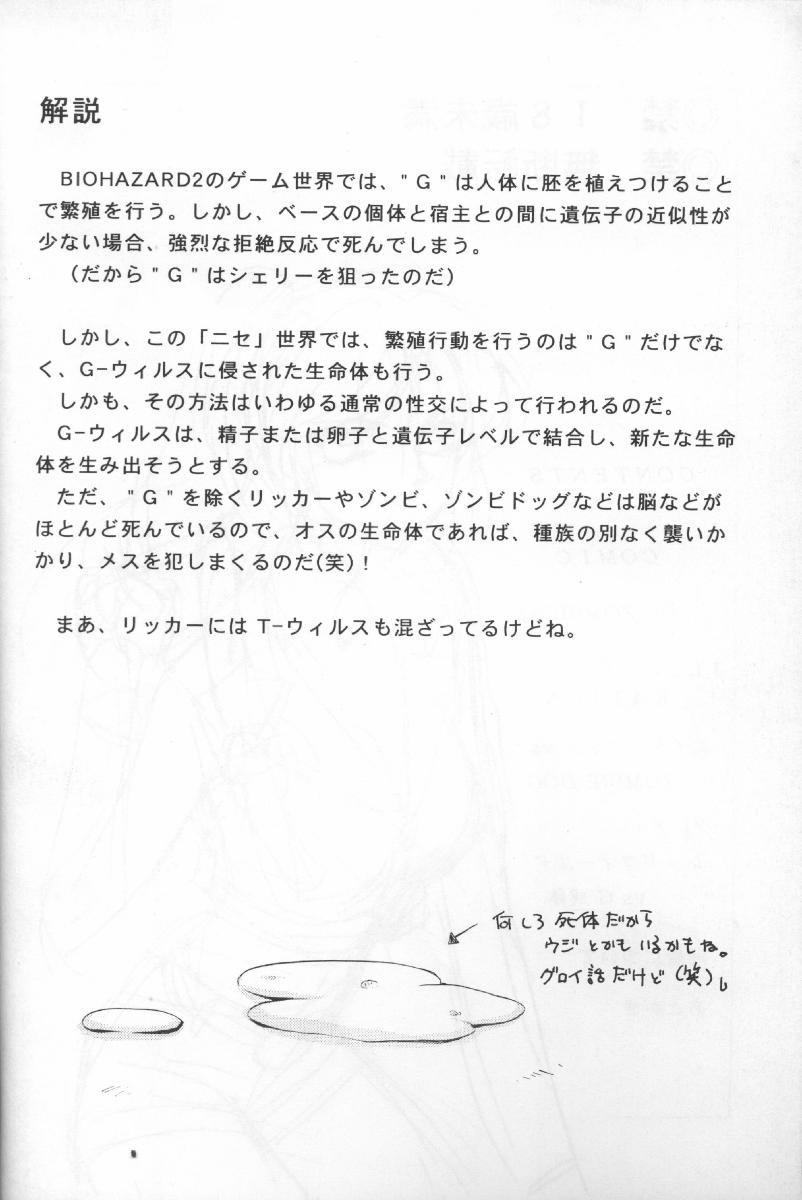 解説
BIOHAZARD2のゲーム世界では、"G"は人体に胚を植えつけること
で繁殖を行う。しかし、ベースの個体と宿主との間に遺伝子の近似性が
少ない場合、強烈な拒絶反応で死んでしまう。
（だから"G"はシェリーを狙ったのだ）
しかし、この「ニセ」世界では、繁殖行動を行うのは"G"だけでな
く、G-ウィルスに侵された生命体も行う。
しかも、その方法はいわゆる通常の性交によって行われるのだ。
G-ウィルスは、精子または卵子と遺伝子レベルで結合し、新たな生命
体を生み出そうとする。
ただ、"G"を除くリッカーやゾンビ、ゾンビドッグなどは脳などが
ほとんど死んでいるので、オスの生命体であれば、種族の別なく襲いか
かり、メスを犯しまくるのだ(笑)！
まあ、リッカーには T-ウィルスも混ざってるけどね。
何しろ死体だから
ウジとかもいるかもね。
グロイ話だけど（笑）